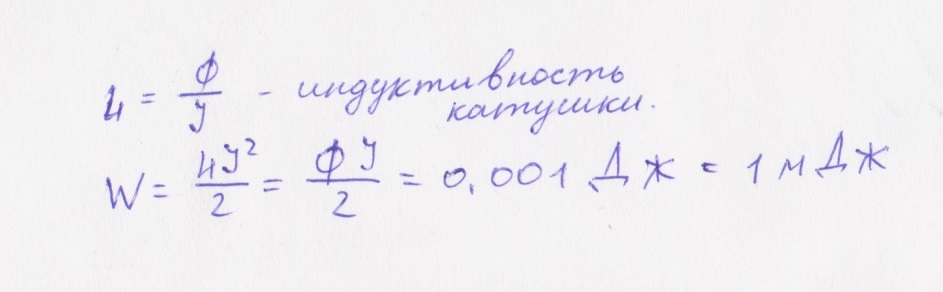 L = Ф/I - индуктивность
катушки.
W = LI²/2 = ФI/2 = 0,001 Дж = 1 мДж